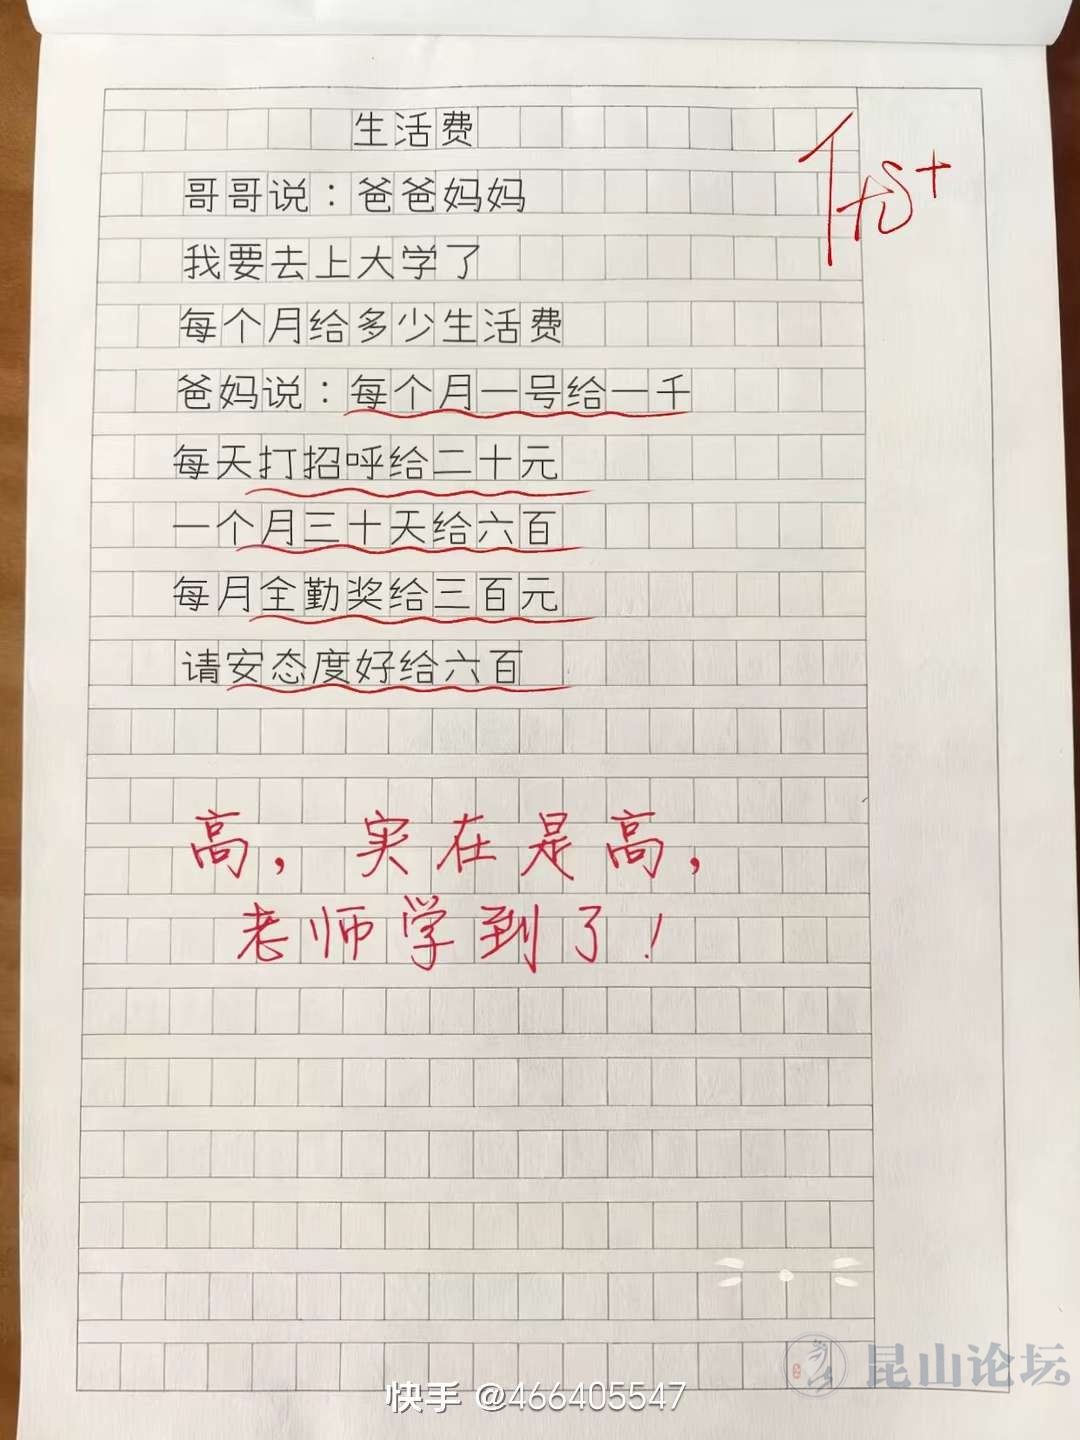 生活费
优+
哥哥说：爸爸妈妈
我要去上大学了
每个月给多少生活费
爸妈说：每个月一号给一千
每天打招呼给二十元
一个月三十天给六百
每月全勤奖给三百元
请安态度好给六百
高，实在是高，
老师学到了！
昆山论坛
快手 @466405547